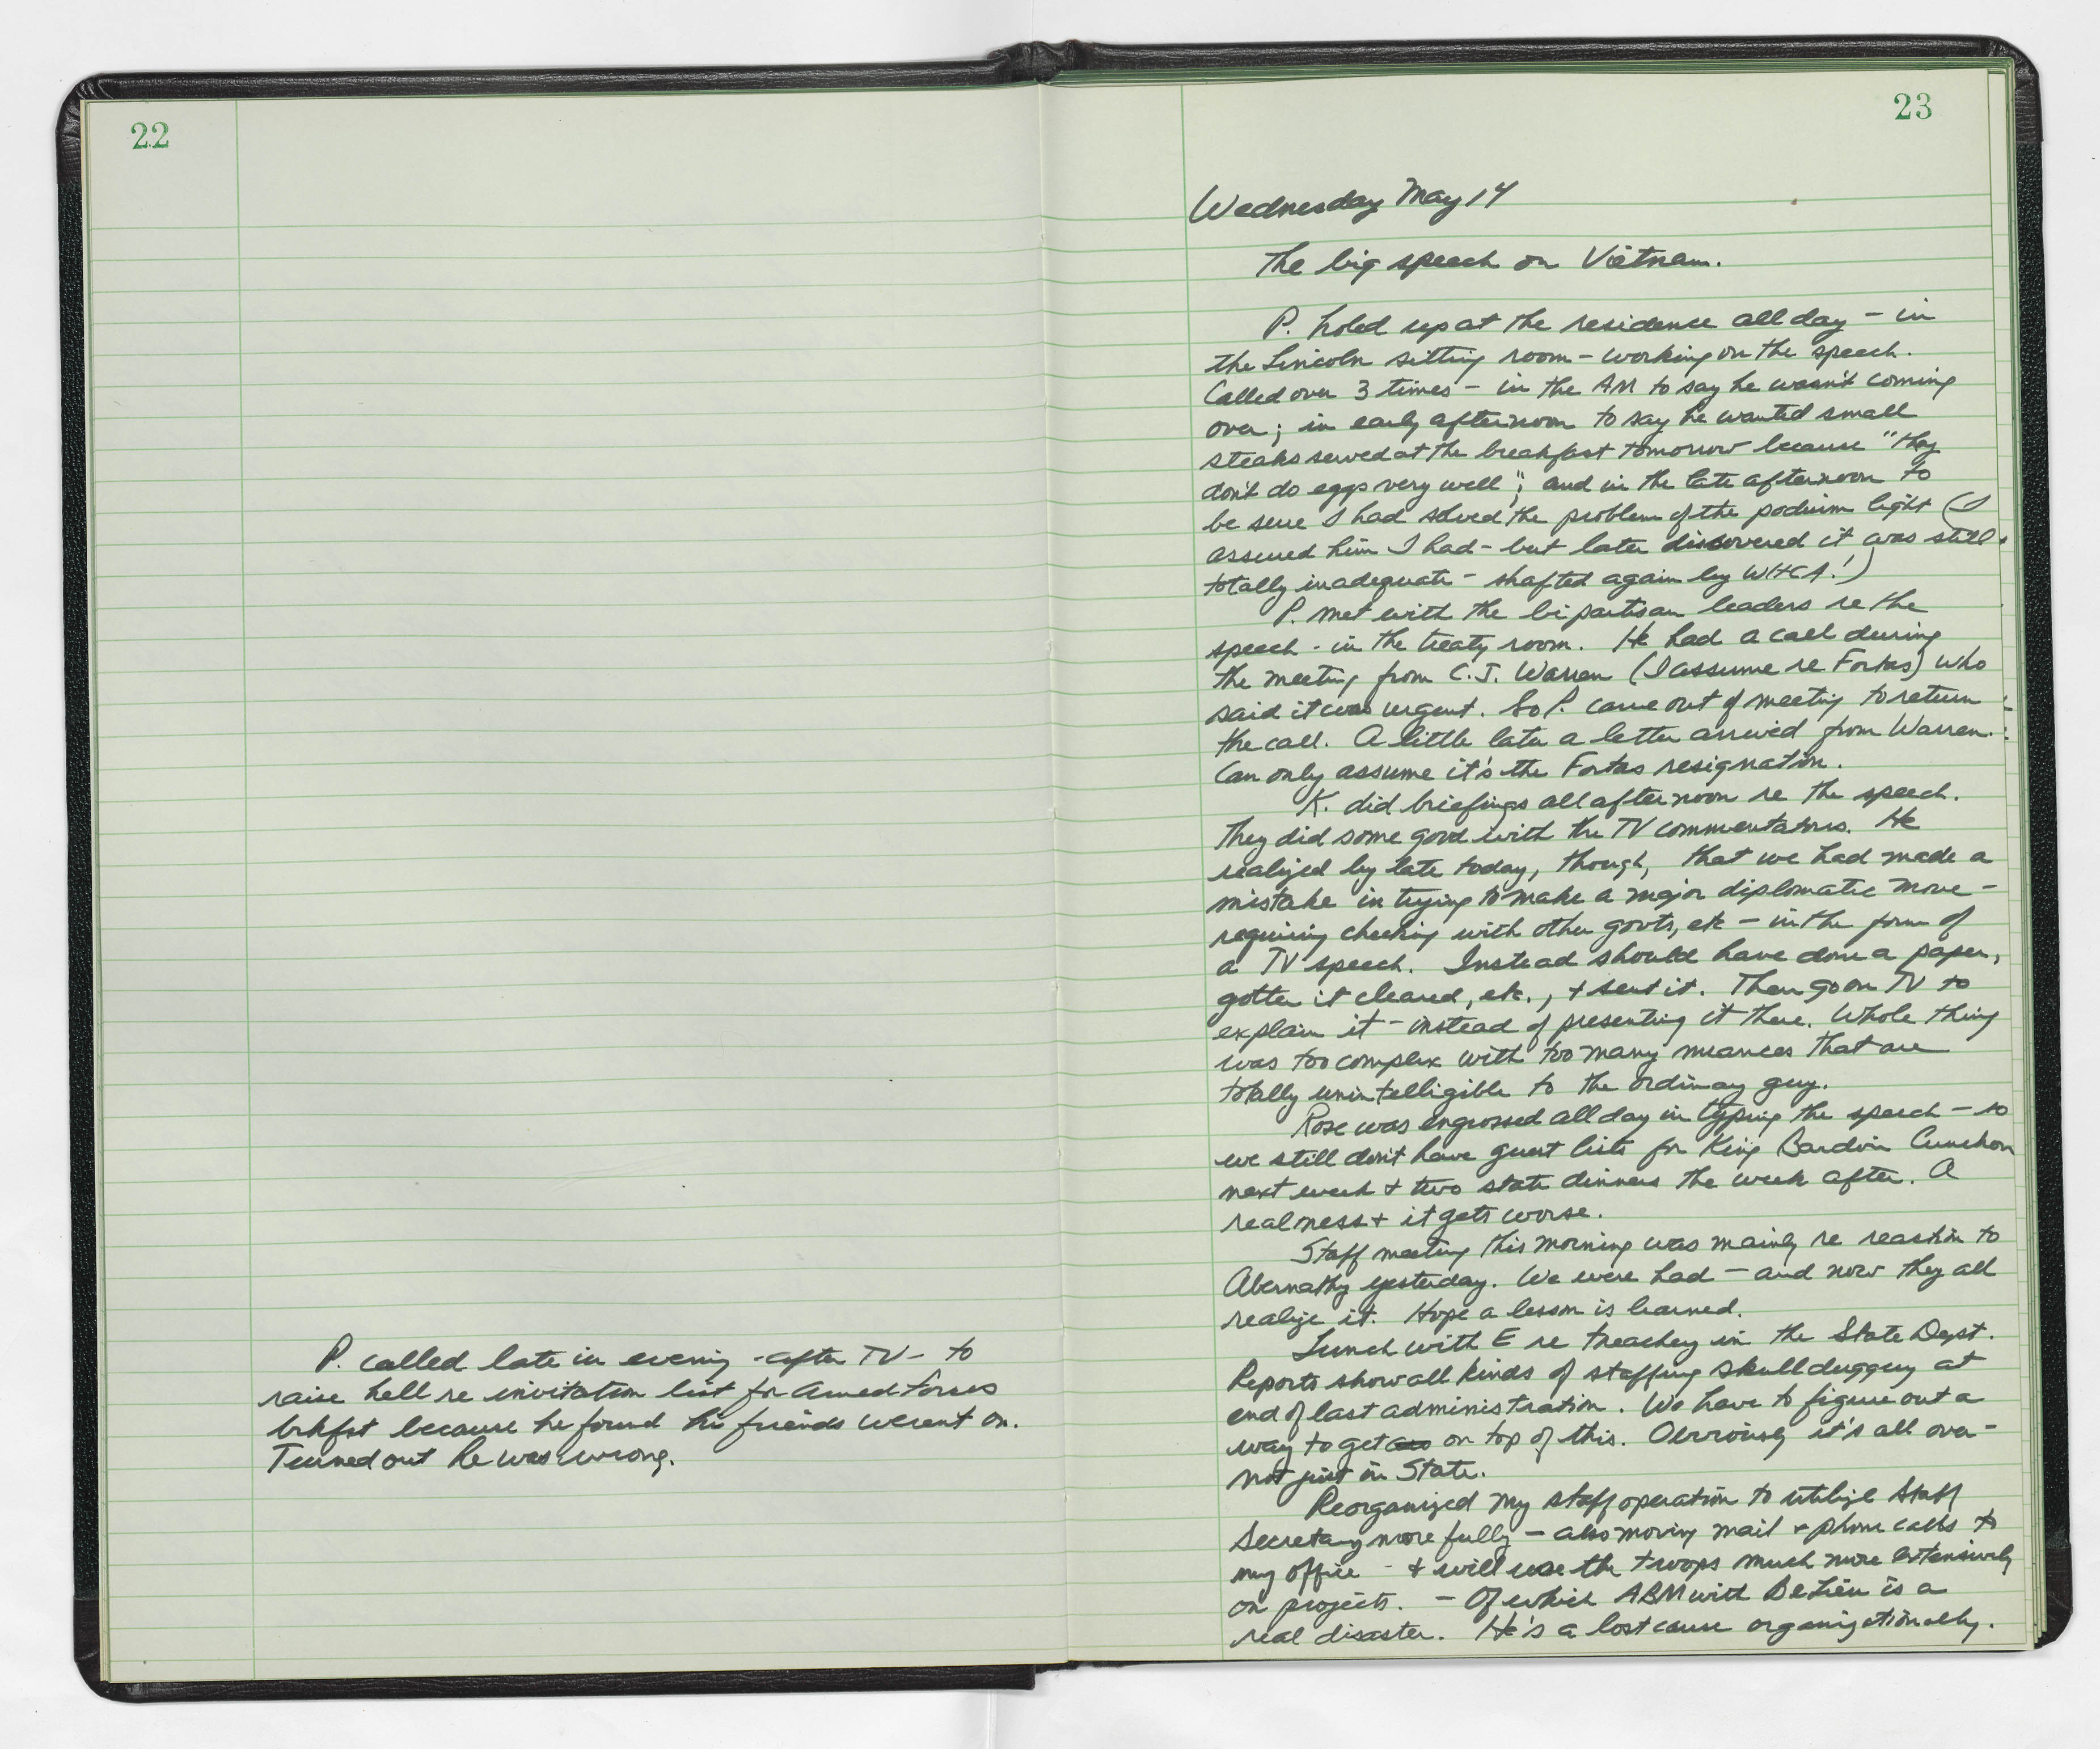 22
P. called late in evening - after TV - to
raise hell re invitation list for Armed Forces
brkfst because he found his friends weren't on.
Turned out he was wrong.
23
Wednesday May 14
The big speech on Vietnam.
P. holed up at the residence all day - in
the Lincoln sitting room - working on the speech.
Called over 3 times - in the AM to say he wasn't coming
over; in early afternoon to say he wanted small
steaks served at the breakfast tomorrow because "they
don't do eggs very well"; and in the late afternoon to
be sure I had solved the problem of the podium light (I
assured him I had - but later discovered it was still
totally inadequate - shafted again by WHCA!)
P. met with the bipartisan leaders re the
speech - in the treaty room. He had a call during
the meeting from C.J. Warren (I assume re Fortas) who
said it was urgent. So P. came out of meeting to return
the call. A little later a letter arrived from Warren.
Can only assume it's the Fortas resignation.
K. did briefings all afternoon re the speech.
They did some good with the TV commentators. He
realized by late today, though, that we had made a
mistake in trying to make a major diplomatic move -
requiring checking with other govts, etc - in the form of
a TV speech. Instead should have done a paper,
gotten it cleared, etc., + sent it. Then go on TV to
explain it - instead of presenting it there. Whole thing
was too complex with too many nuances that are
totally unintelligible to the ordinary guy.
Rose was engrossed all day in typing the speech - so
we still don't have guest lists for King Baudoin luncheon
next week + two state dinners the week after. A
real mess + it gets worse.
Staff meeting this morning was mainly re reaction to
Abernathy yesterday. We were had - and now they all
realize it. Hope a lesson is learned.
Lunch with E re treachery in the State Dept.
Reports show all kinds of staffing skullduggery at
end of last administration. We have to figure out a
way to get on top of this. Obviously it's all over -
not just in State.
Reorganized my staff operation to utilize Staff
Secretary more fully - also moving mail + phone calls to
my office - + will use the troops much more extensively
on projects. - Of which ABM with BeLieu is a
real disaster. He's a lost cause organizationally.